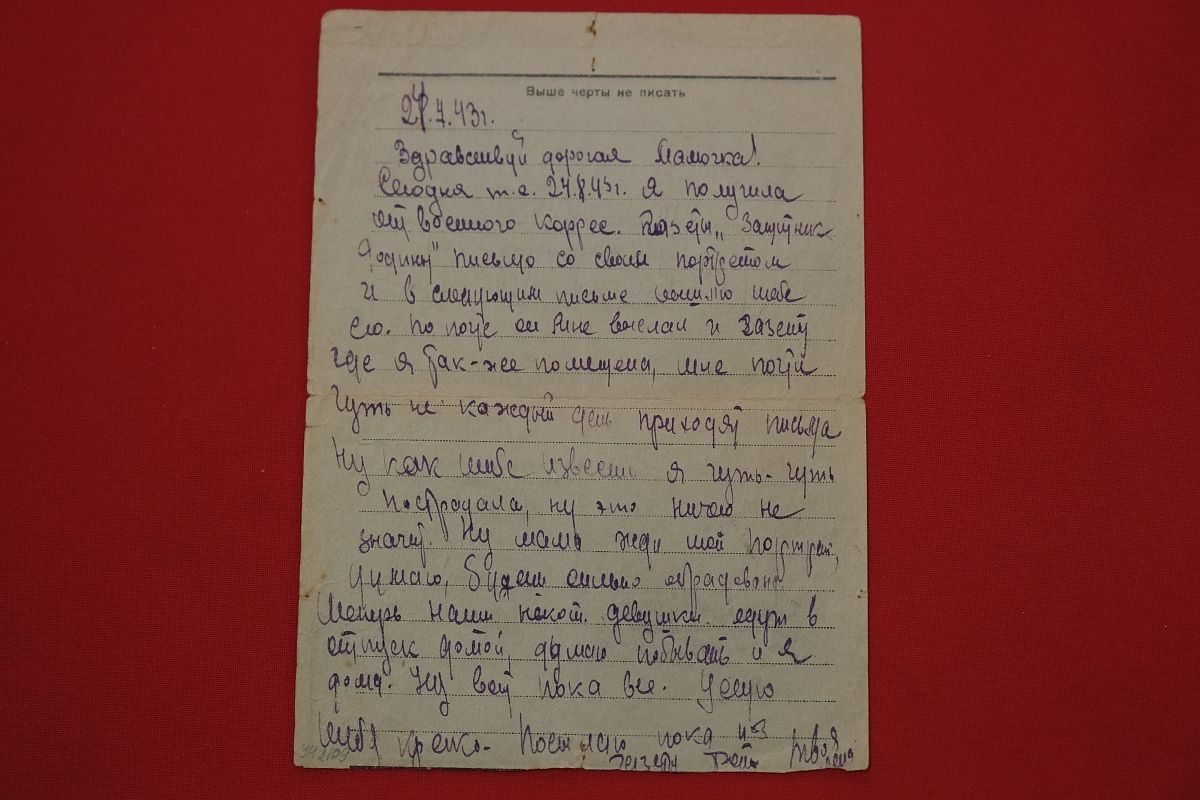 Выше черты не писать
24.7.43г.
Здравствуй дорогая Мамочка!
Сегодня т.е. 24.8.43г. я получила
от военного коррес. Газеты „Защитник
Родины" письмо со своим портретом
и в следующим письме вышлю тебе
его. По поче он мне выслал и газету
где я так-же помещена, мне почти
чуть не каждый день приходят письма
Ну как тебе известно я чуть-чуть
пострадала, ну это ничего не
значит. Ну мама жди мой портрет,
думаю, будешь сильно обрадована
Теперь наши некот. девушки едут в
отпуск домой, думаю побывать и я
дома. Ну вот пока все. Целую
тебя крепко. Посылаю пока из
газеты фото твоя